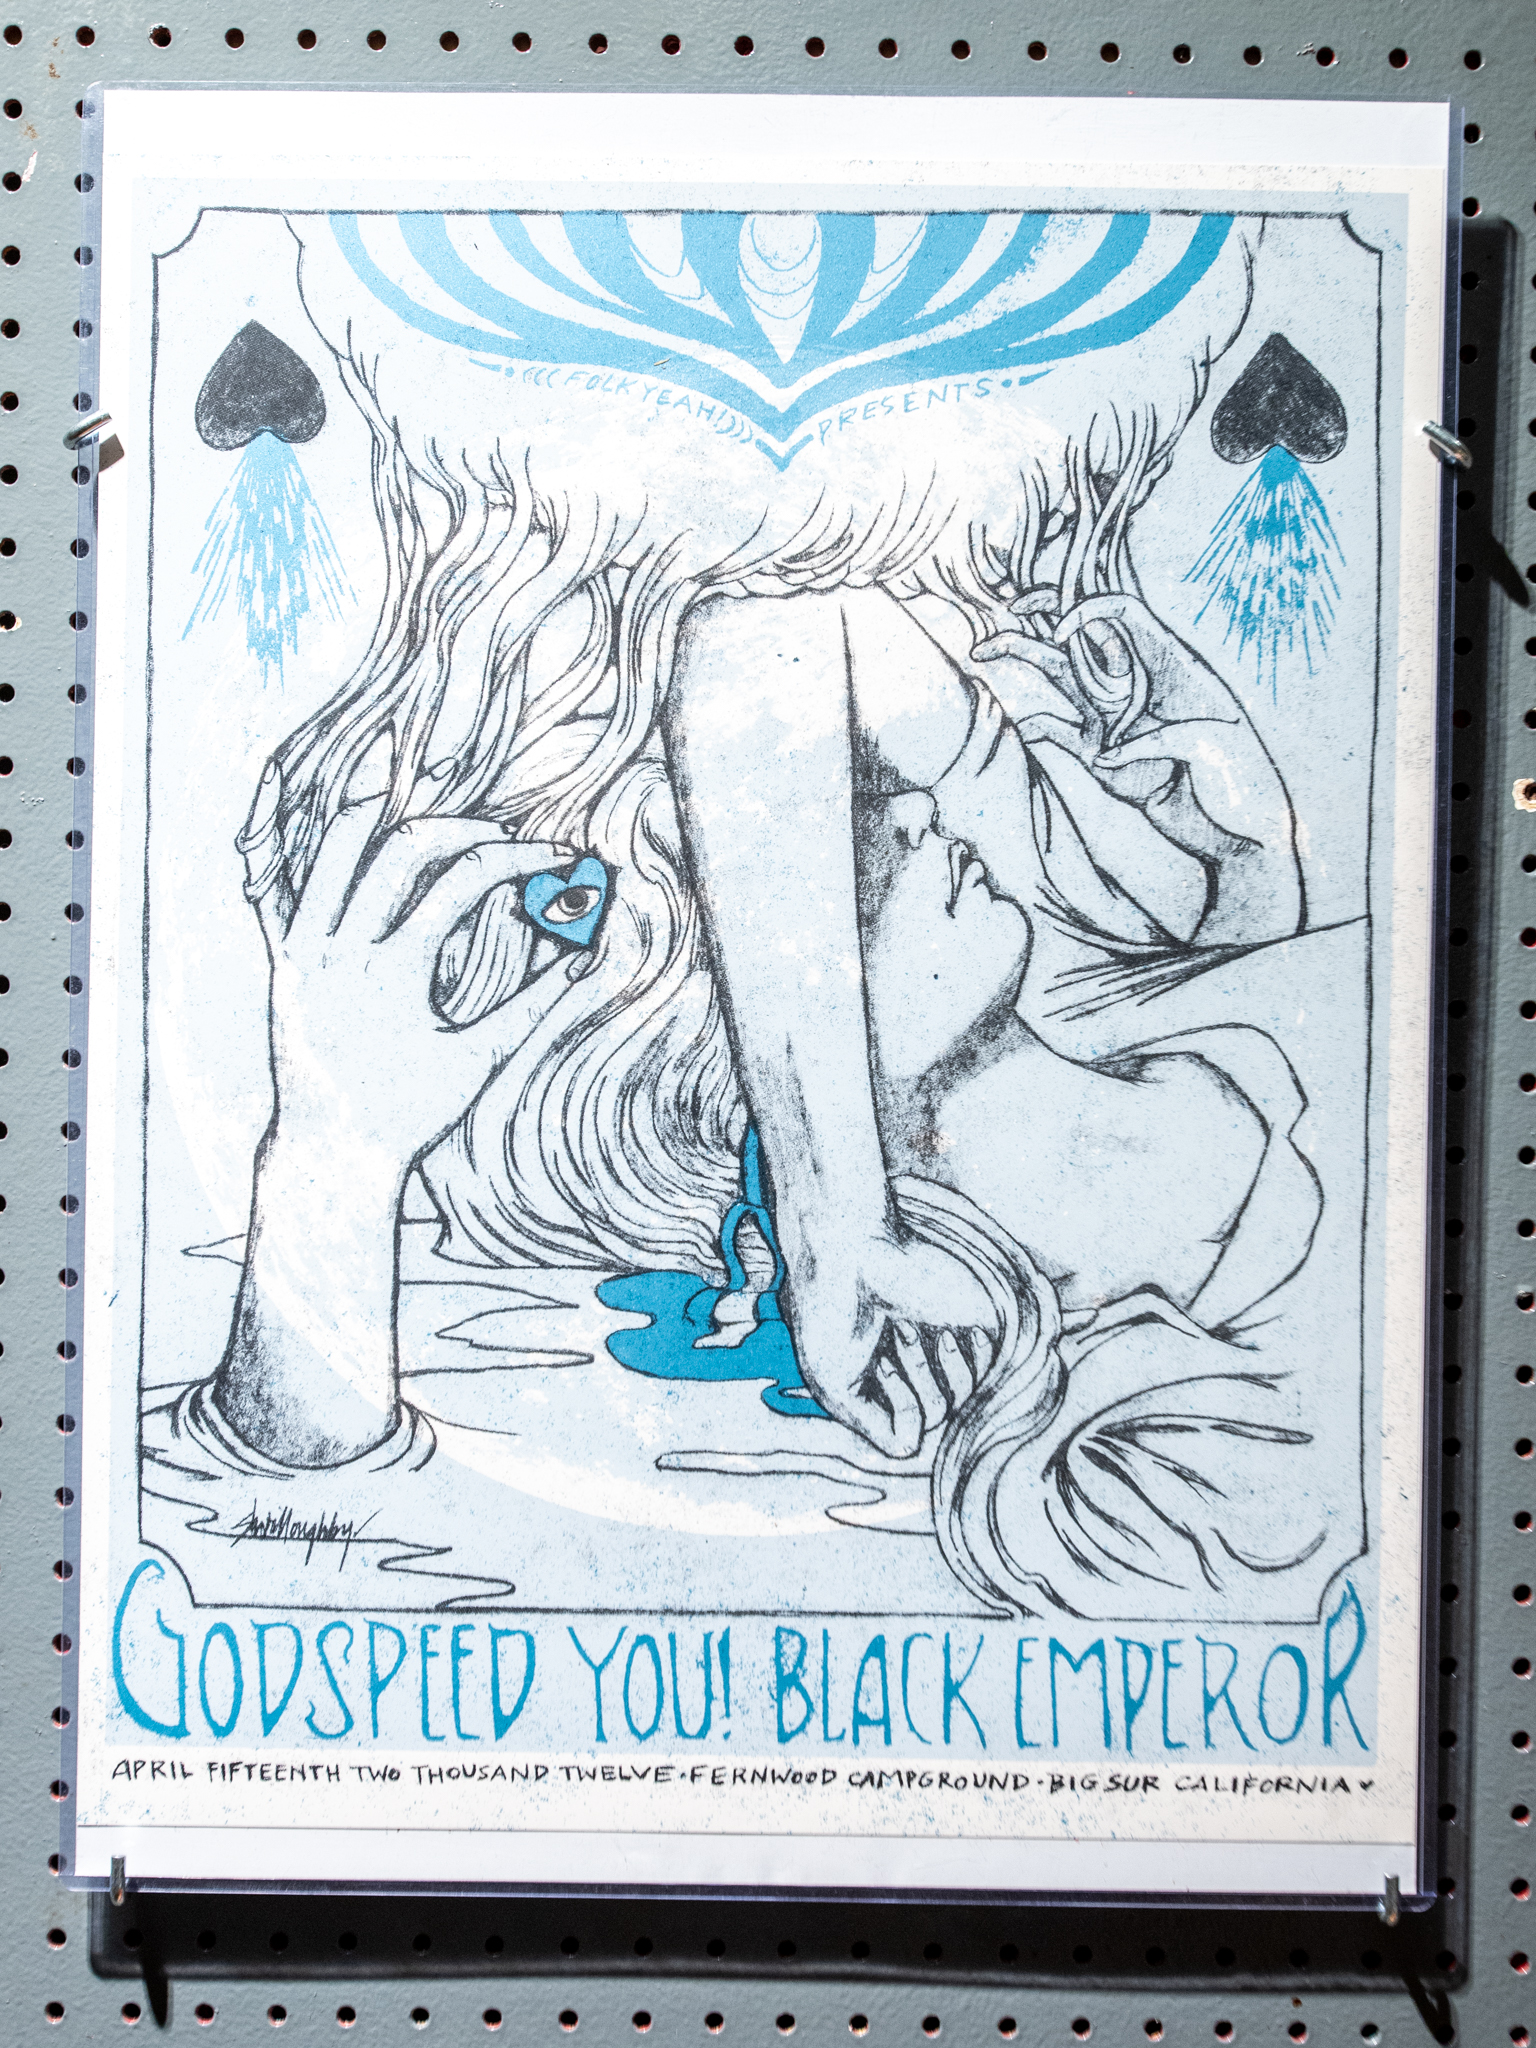 (((FOLKYEAH!))) PRESENTS
GODSPEED YOU! BLACK EMPEROR
APRIL FIFTEENTH TWO THOUSAND TWELVE·FERNWOOD CAMPGROUND·BIG SUR CALIFORNIA